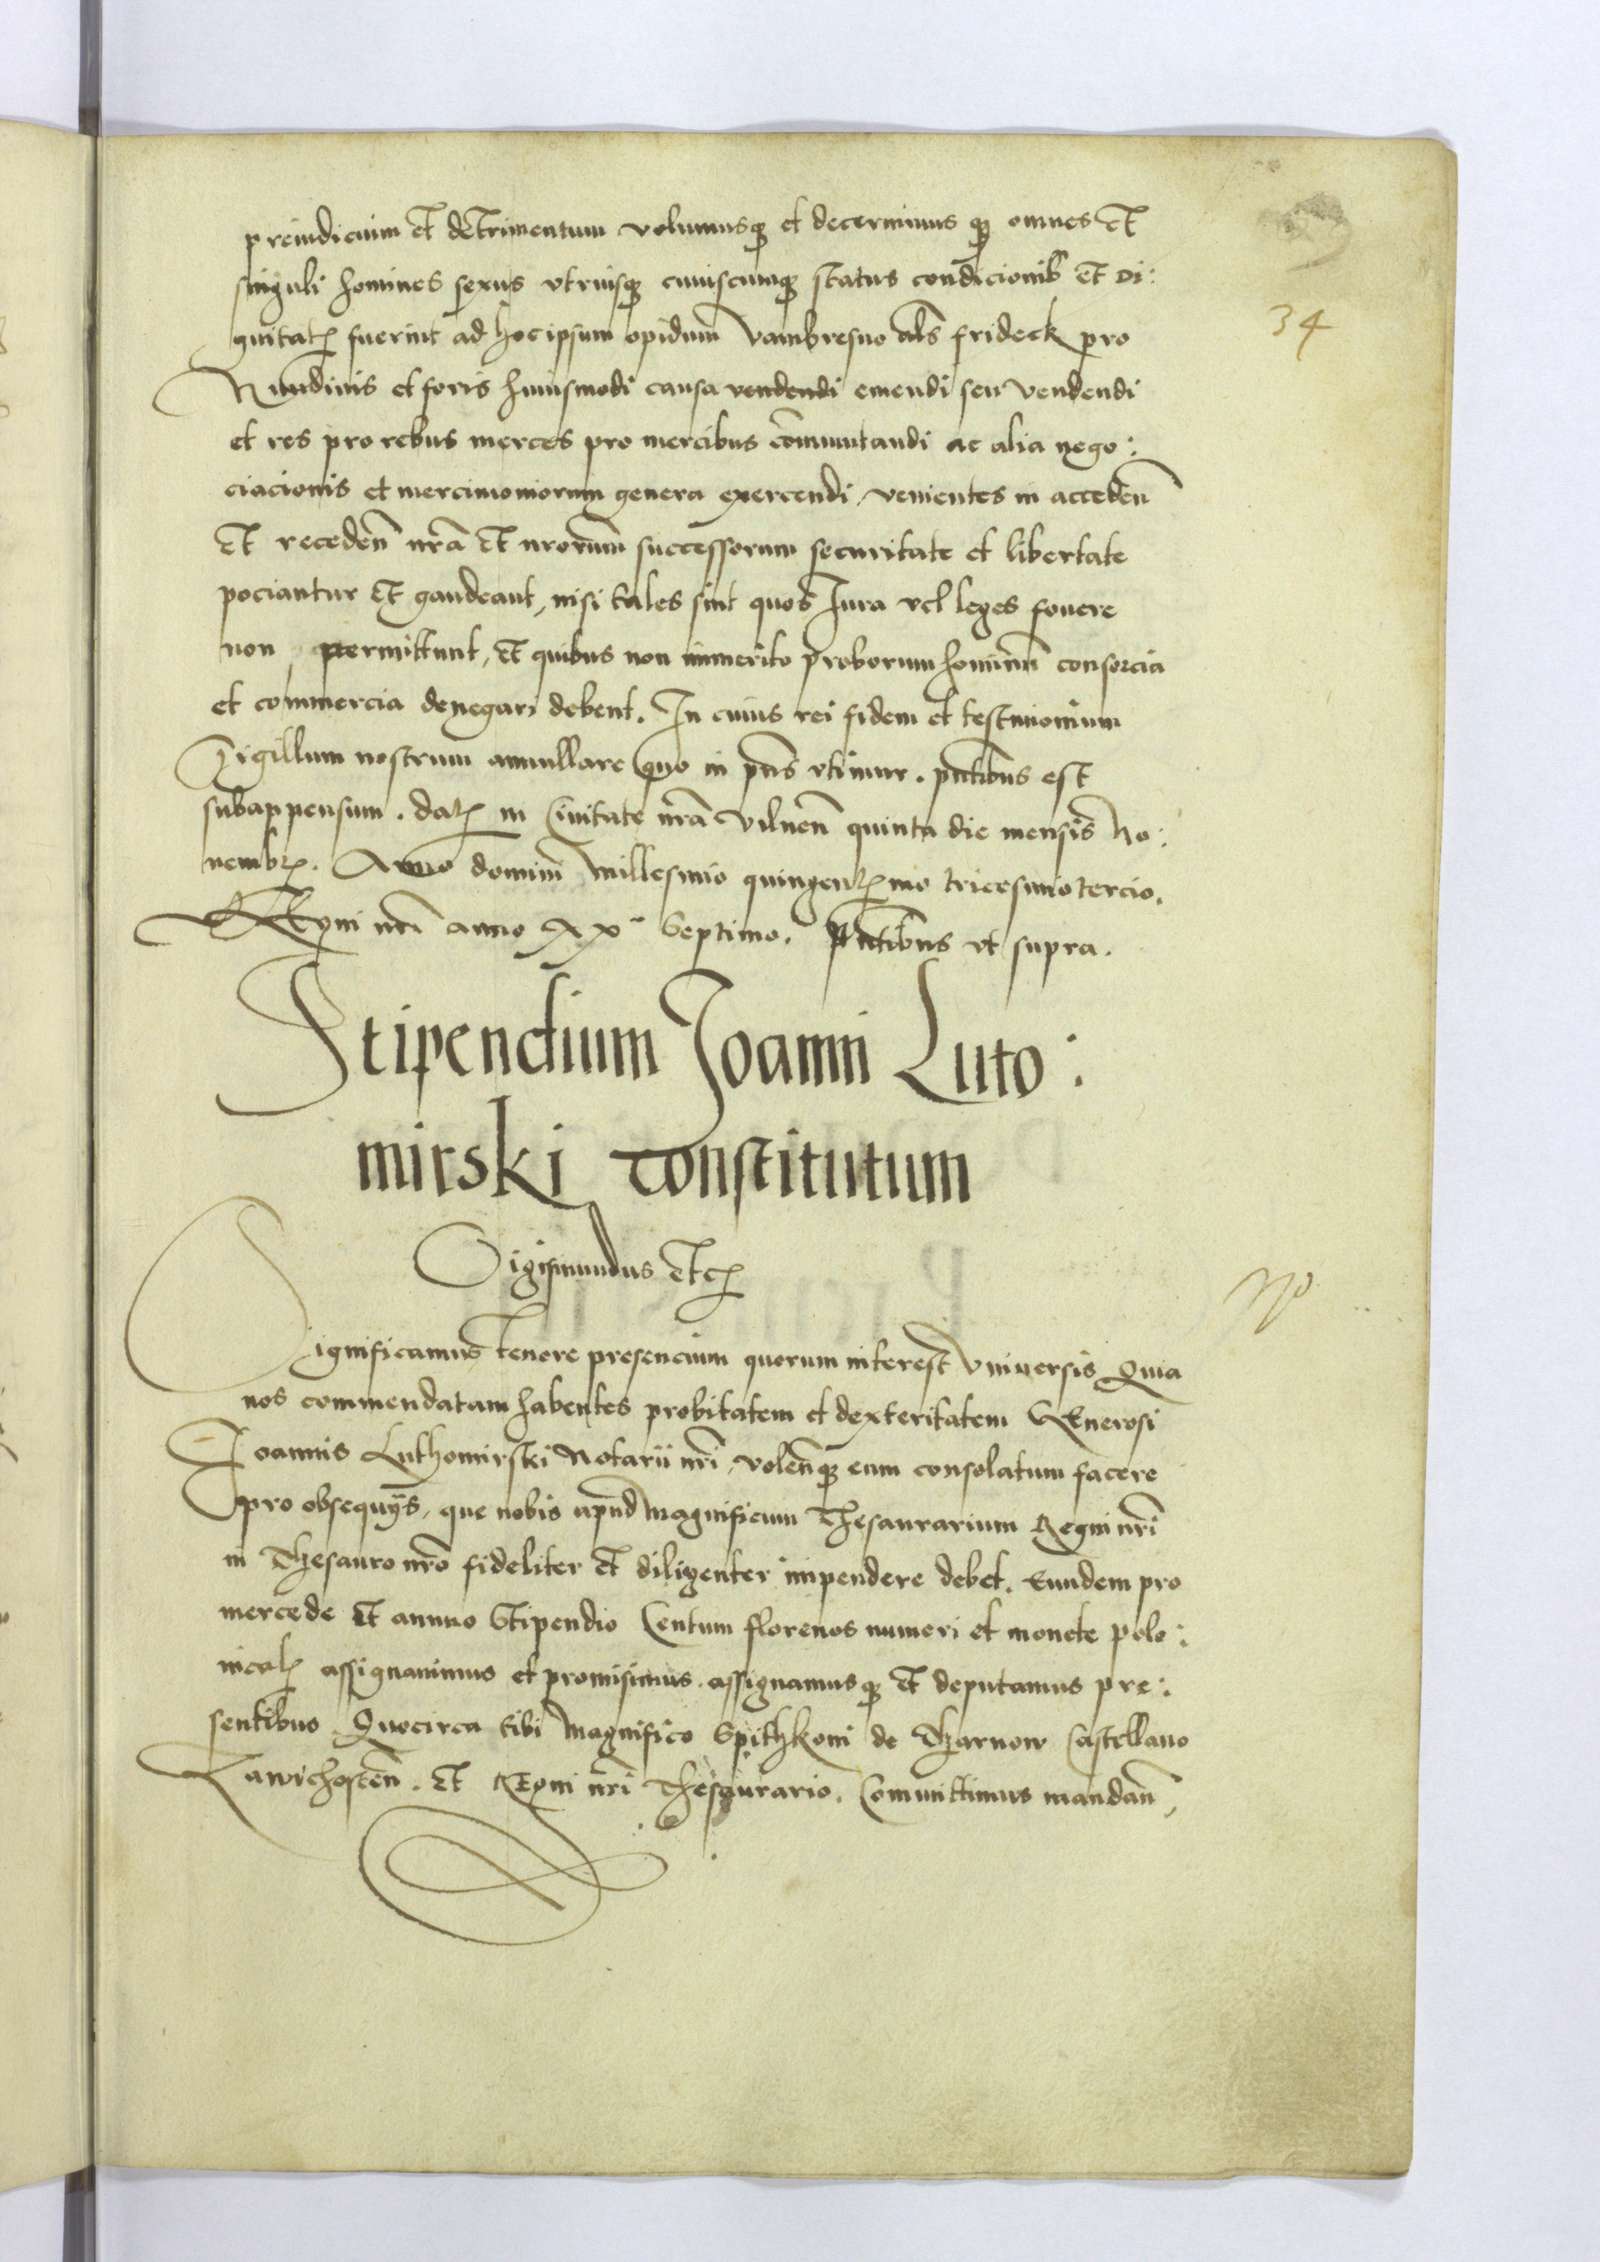 preiudicium et detrimentum volumusq et decernimus q omnes et
singuli homines sexus vtriusq cuiuscumq status condicionis et di:
34
gnitatis fuerint ad hoc ipsum opidum Vambresno als frideck pro
Nundinis et foris huiusmodi causa vendendi emendi seu vendendi
et res pro rebus merces pro mercibus comutandi ac alia nego:
ciacionis et mercimoniorum genera exercendi, venientes in acceden
et receden nra et nrorum successorum securitate et libertate
pociantur et gaudeant, nisi tales sint quos Iura vel leges fouere
non permittunt, et quibus non immerito proborum hominum consorcia
et commercia denegari debent. In cuius rei fidem et testimonium
Sigillum nostrum annullare quo in pns vtimur. pntibus est
subappensum. dat in Ciuitate nra Vilnen quinta die mensis No:
uembr. Anno domini Millesimo quingentmo tricesimo tercio.
Regni nri anno XX Septimo. Pntibus vt supra.
Stipendium Joanni Luto:
mirski constitutum
Sigismundus etc
Significamus tenore presencium quorum interest Vniuersis Quia
nos commendatam habentes probitatem et dexteritatem Generosi
Ioannis Luthomirski Notarii nri, volenq eum consolatum facere
pro obsequys, que nobis apud Magnificum Thesaurarium Regni nri
in Thesauro nro fideliter et diligenter impendere debet. Eundem pro
mercede et annuo Stipendio Centum florenos numeri et monete polo:
nical assignauimus et promisimus. assignamusq et deputamus pre:
sentibus Quocirca tibi Magnifico Spithkoni de Tharnow Castellano
Zawichosten. et Regni nri Thesaurario. Comittimus mandan,